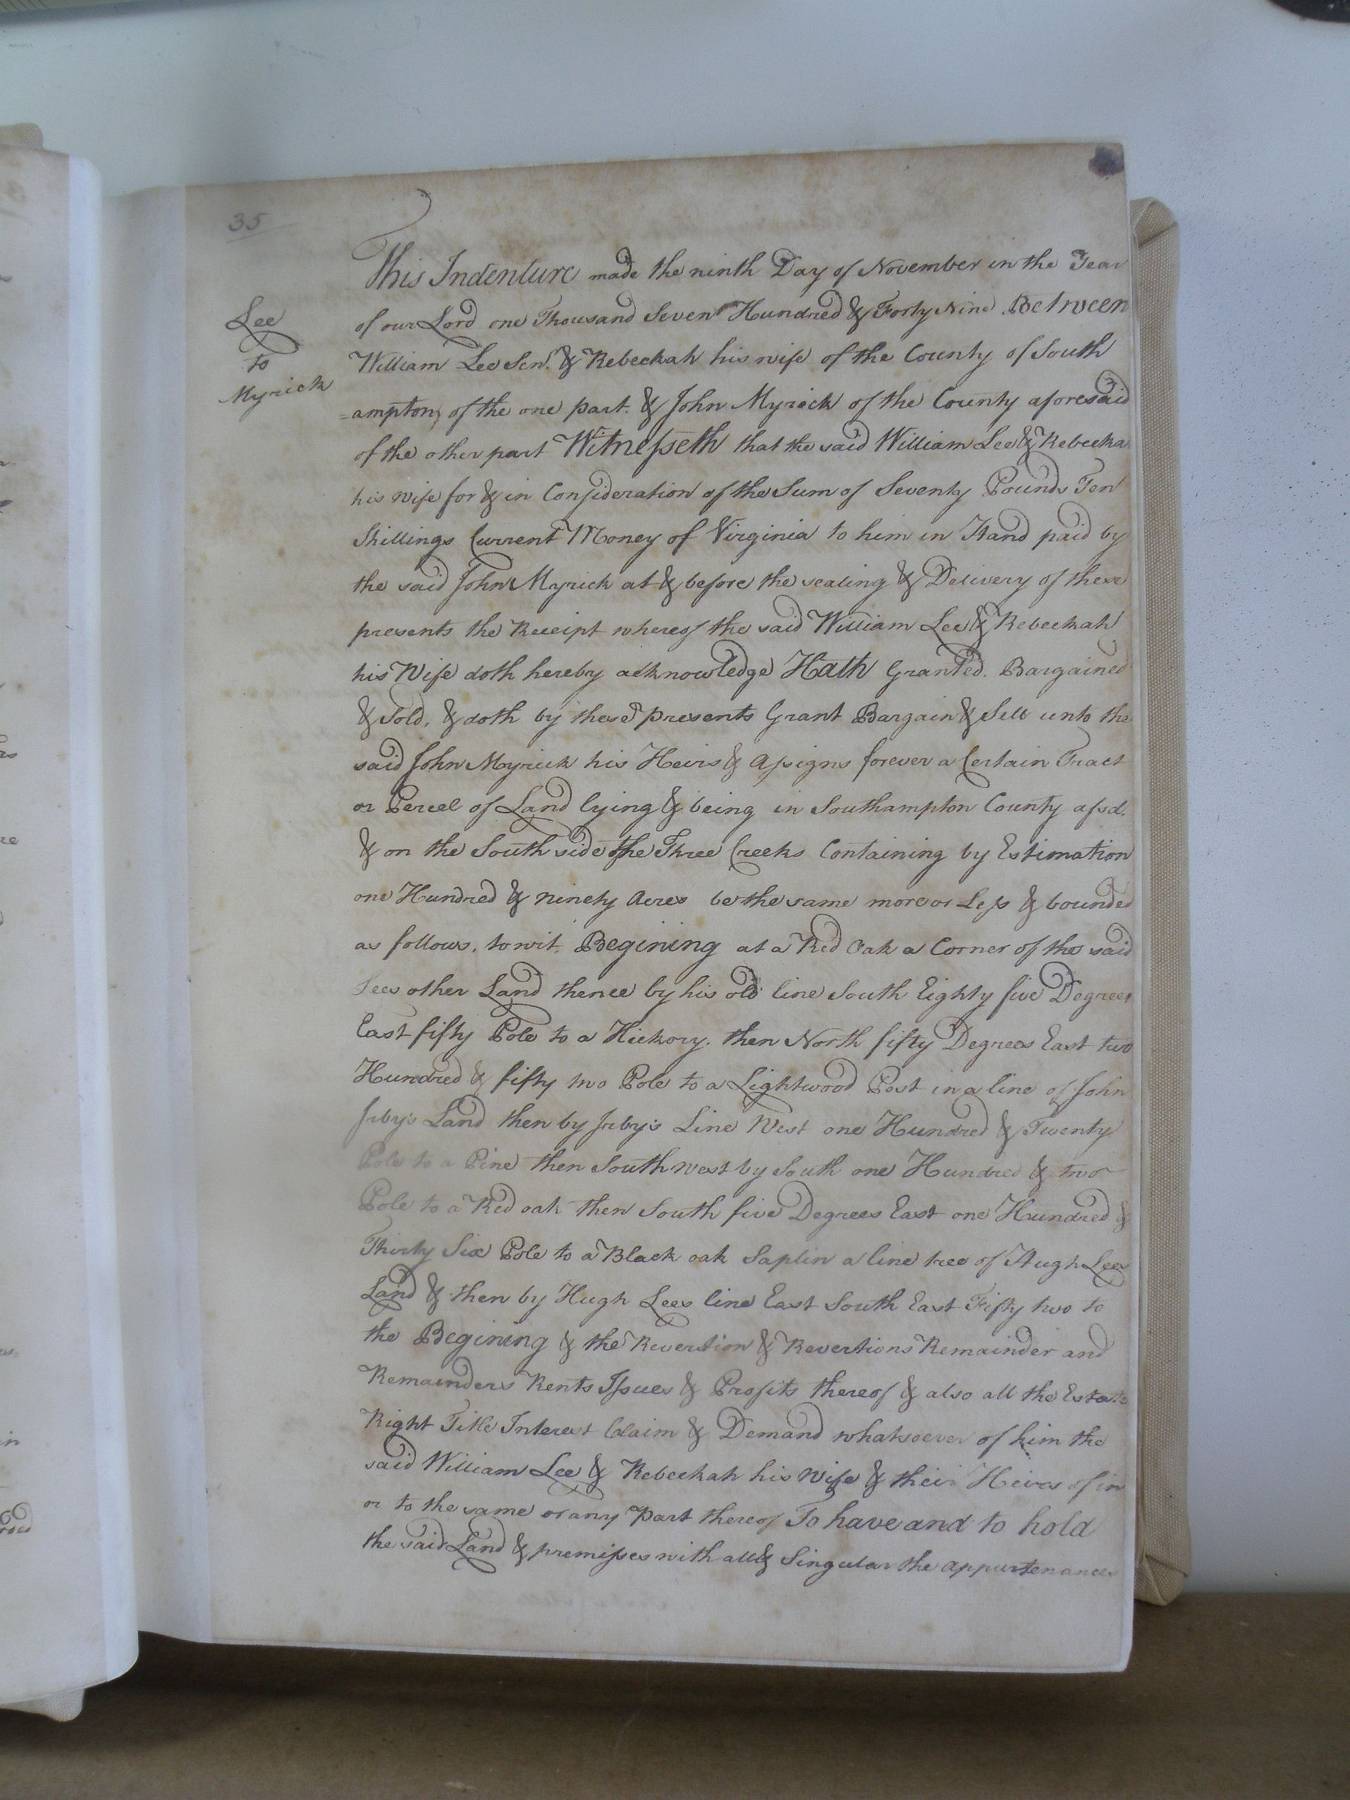 35
Lee
to
Myrick
This Indenture made the ninth Day of November in the Year
of our Lord one Thousand Seven Hundred & Forty Nine. Between
William Lee Senr. & Rebeckah his wife of the County of South
=ampton, of the one part. & John Myrick of the County aforesaid
of the other part Witnesseth that the said William Lee & Rebecka
his wife for & in Consideration of the Sum of Seventy Pounds Ten
Shillings Current Money of Virginia to him in Hand paid by
the said John Myrick at & before the sealing & Delivery of these
presents the Receipt whereof the said William Lee & Rebeckah
his Wife doth hereby acknowledge Hath Granted. Bargained
& Sold, & doth by these presents Grant Bargain & Sell unto the
said John Myrick his Heirs & Assigns forever a Certain Tract
or Percel of Land lying & being in Southampton County afsd.
& on the South side of the Three Creeks Containing by Estimation
one Hundred & ninety Acres be the same more or Less & bounded
as follows. to wit. Begining at a Red Oak a Corner of the said
Lees other Land thence by his old line South Eighty five Degrees
East fifty Pole to a Hickory. then North fifty Degrees East two
Hundred & fifty two Pole to a Lightwood Post in a line of John
Irby's Land then by Irby's Line West one Hundred & Twenty
Pole to a Pine then South west by South one Hundred & two
Pole to a Red oak then South five Degrees East one Hundred &
Thirty Six Pole to a Black oak Saplin a line tree of Hugh Lees
Land & then by Hugh Lees line East South East Fifty two to
the Begining & the Revertion & Revertions Remainder and
Remainders Rents Issues & Profits thereof & also all the Estate
Right Title Interest Claim & Demand whatsoever of him the
said William Lee & Rebeckah his Wife & their Heirs of in
or to the same or any Part thereof To have and to hold
the said Land & premisses with all & Singular the appurtenances